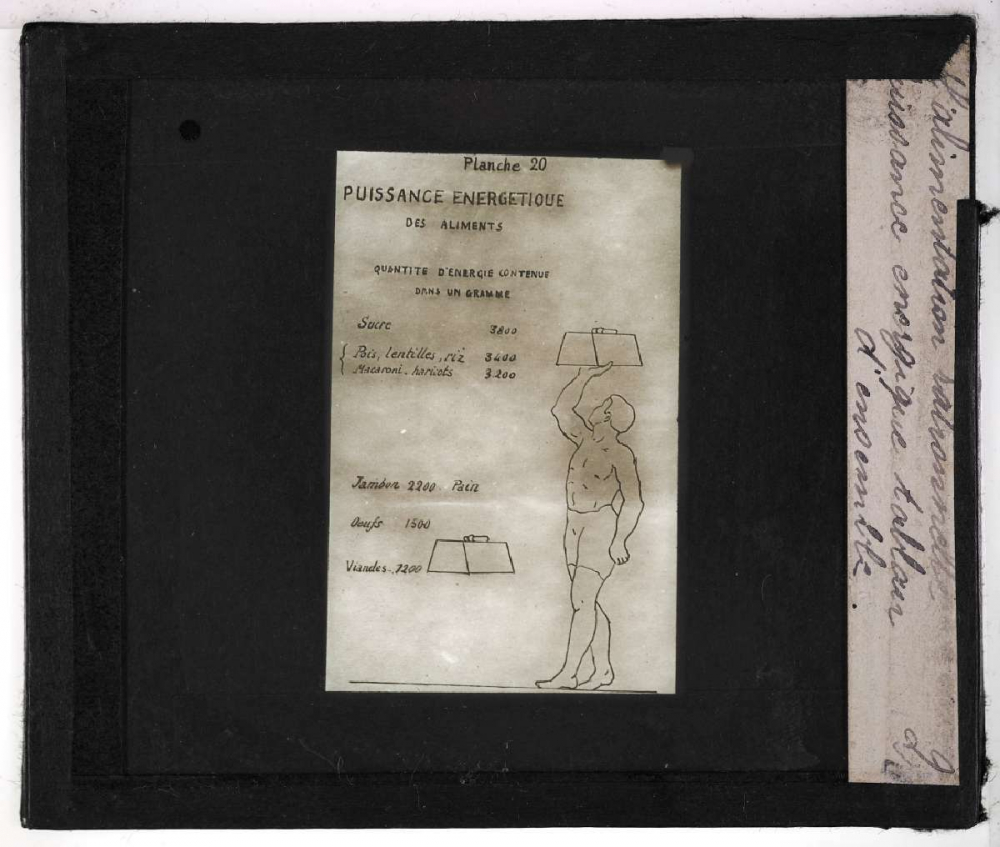 Planche 20
PUISSANCE ENERGETIQUE
DES ALIMENTS
QUANTITE D'ENERGIE CONTENUE
DANS UN GRAMME
Sucre 3800
Pois, lentilles, riz 3400
Macaroni. haricots 3200
Jambon 2200. Pain
Oeufs 1500
Viandes. 1200
L'alimentation rationnelle
puissance energique tableau
d'ensemble